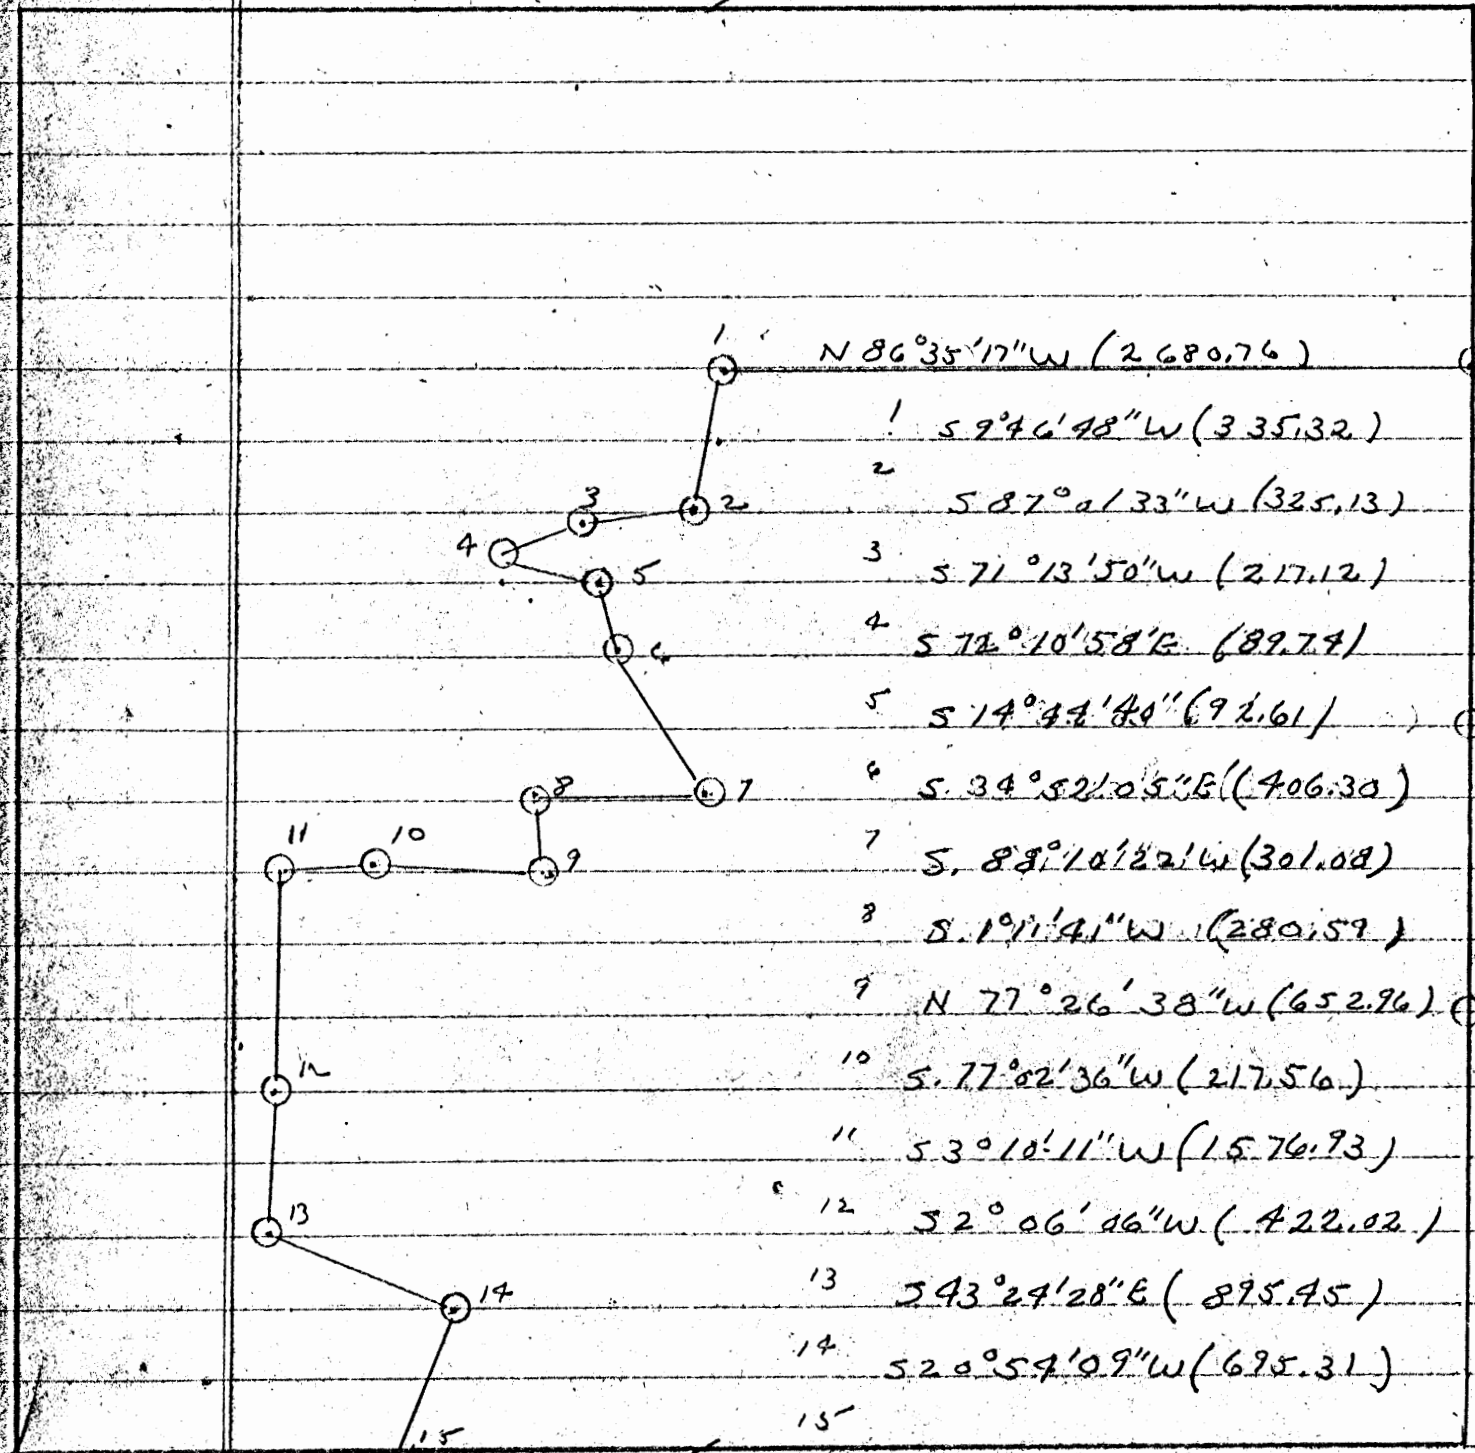 1 N 86°35'17"W (2680.76)
1 S 9°46'48"W (335.32)
2
3 2 S 87°01'33"W (325.13)
4 3
5 S 71°13'50"W (217.12)
4
6 S 72°10'58"E (89.74)
5 S 14°44'40" (92.61)
8 7 6 S. 34°52'05"E (406.30)
11 10 9 7 S. 88°10'22"W (301.08)
8 S. 1°11'41"W (280.59)
9 N 77°26'38"W (652.96)
12 10 S. 77°02'36"W (217.56)
11 S 3°10'11"W (1576.93)
13 12 S 2°06'06"W (422.02)
14 13 S 43°24'28"E (895.45)
14 S 20°54'09"W (695.31)
15 15